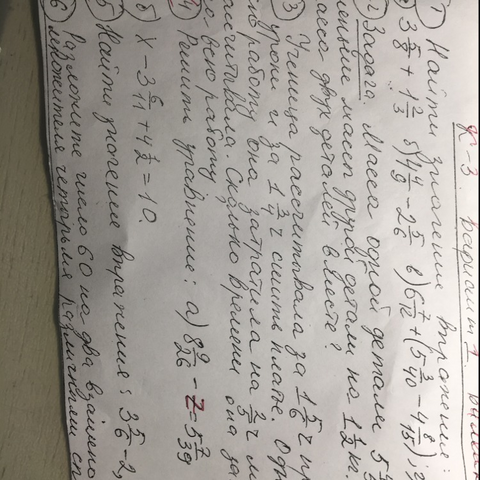 К-3. Вариант 1.
1) Найти значение выражение:
а) 3 5/8 + 1 2/3 б) 4 4/9 - 2 5/6 в) 6 7/12 + (5 3/40 - 4 8/15);
2 Задача. Масса одной детали 5
масса другой детали на 1 1/2 кг.
масса двух деталей вместе?
3 Ученица рассчитывала за 1 5/6 ч
уроки и за 1 3/4 ч сшить платье. Одн
работу она затратила на 2/5 ч
рассчитывала. Сколько времени она за
всю работу
4) Решить уравнение: а) 8 9/26 - z = 5 7/39
б) x - 3 6/11 + 4 1/2 = 10.
5 Найти значение выражения: 3 5/6 - 2,
6 Разложите число 60 на два взаимно
множителя четырьмя различными сп